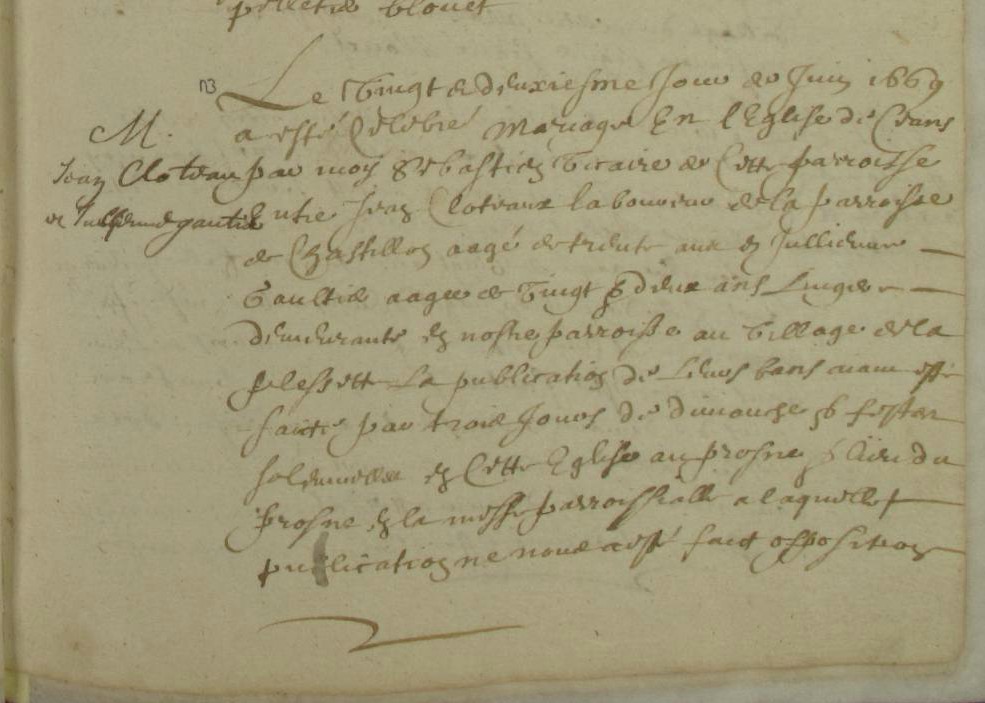 pelletie blouet
n3 Le Vingt & deuxiesme Jour de Juin 1669
M.
a esté Celebré mariage En l'Eglise de Ceans
Jean Cloteau par moy Sebastien Vicaire de Cette parroisse
et Jullienne gautie Entre Jean Cloteaux laboureur de la parroisse
de Chastillon aagé de trente ans & Jullienne
Gaultie aagee de Vingt & deux ans Lingere
demeurante en nostre parroisse au Village de la
plessette La publication de Leurs bans aiant esté
faicte par trois Jours de dimanche & festes
solemnelles en Cette Eglise au prosne & lieu du
prosne en la messe parroissialle a laquelle
publication ne nous a esté faict opposition